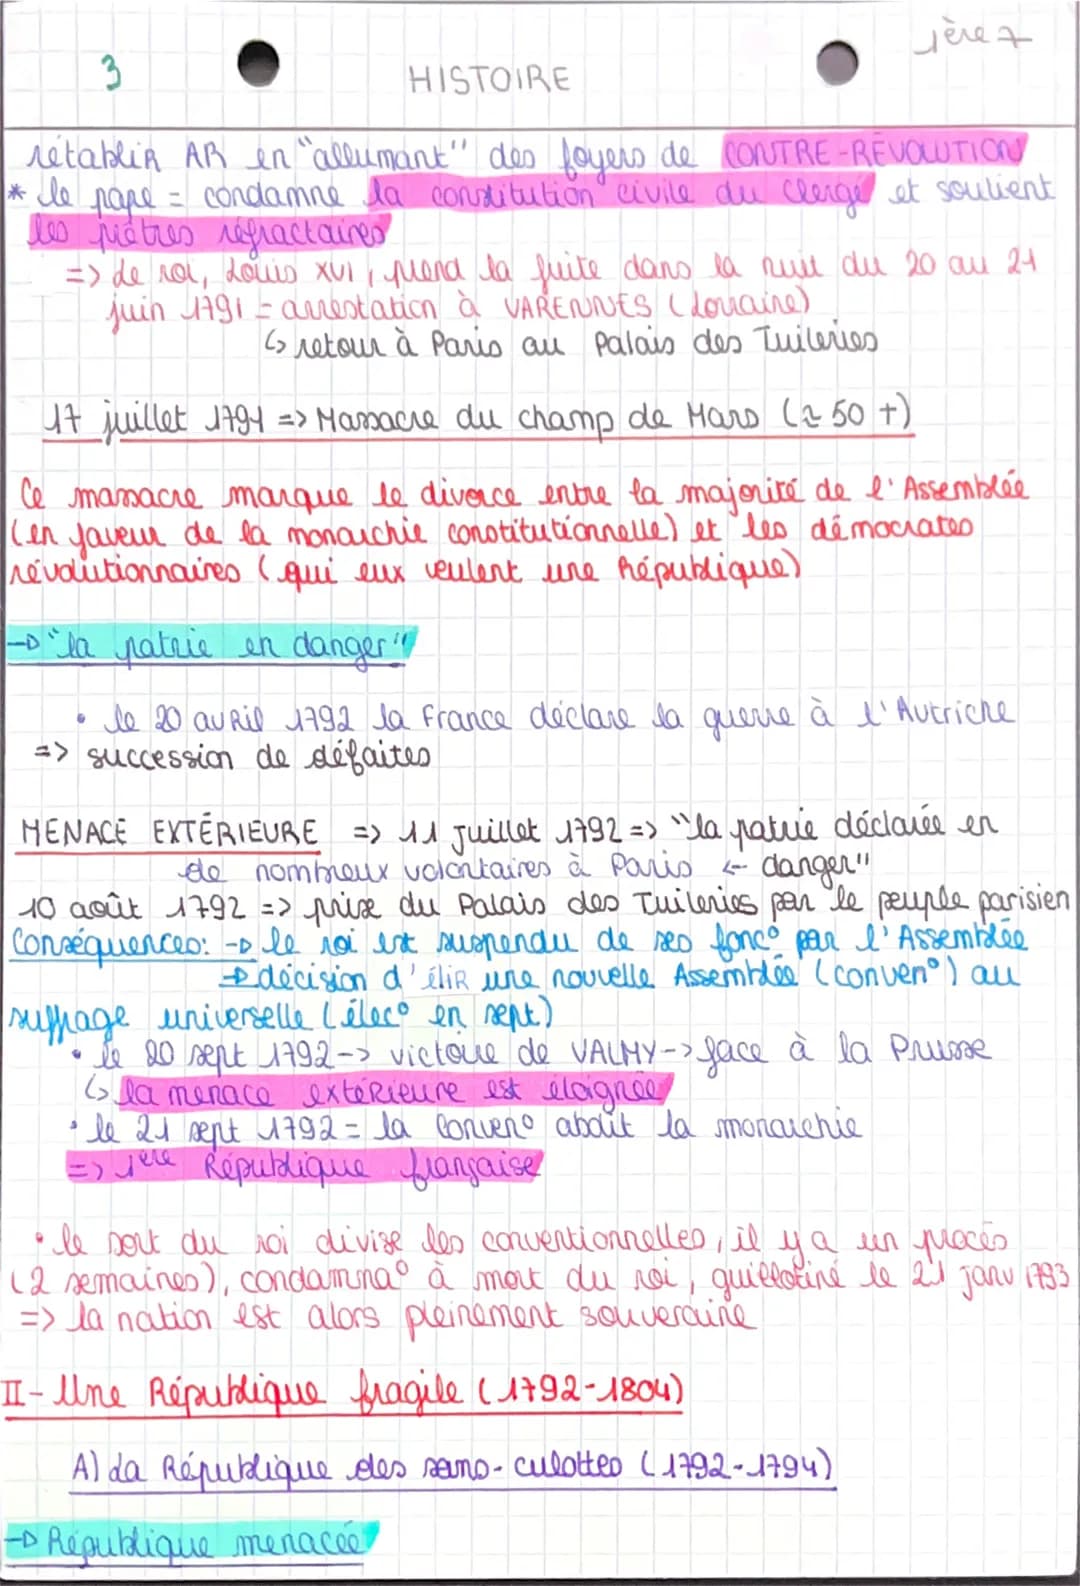 1ère 7
3
HISTOIRE
rétablir AR en "allumant" des foyers de CONTRE-RÉVOLUTION
* le pape = condamne la constitution civile du clergé et soutient
les prêtres réfractaires
=> Le roi, Louis XVI, prend la fuite dans la nuit du 20 au 21
juin 1791 = arrestation à VARENNES (Lorraine)
↳ retour à Paris au Palais des Tuileries
17 juillet 1791 => Massacre du champ de Mars (≈ 50 +)
Ce massacre marque le divorce entre la majorité de l'Assemblée
(en faveur de la monarchie constitutionnelle) et les démocrates
révolutionnaires (qui eux veulent une République)
→ "la patrie en danger"
• le 20 avril 1792 la France déclare la guerre à l'Autriche
=> succession de défaites
MENACE EXTÉRIEURE => 11 juillet 1792 => "la patrie déclarée en
de nombreux volontaires à Paris ← danger"
10 août 1792 => prise du Palais des Tuileries par le peuple parisien
Conséquences: → le roi est suspendu de ses fonc° par l'Assemblée
→ décision d'élir une nouvelle Assemblée (conven°) au
suffrage universelle (élec° en sept)
• le 20 sept 1792 -> victoire de VALMY -> face à la Prusse
↳ la menace extérieure est éloignée
• le 21 sept 1792 = la Conven° aboit la monarchie
=> 1ère République française
• le sort du roi divise les conventionnelles, il y a un procès
(2 semaines), condamna° à mort du roi, guillotiné le 21 janv 1793
=> la nation est alors pleinement souveraine
II- Une République fragile (1792-1804)
A) La République des sans-culottes (1792-1794)
→ République menacée